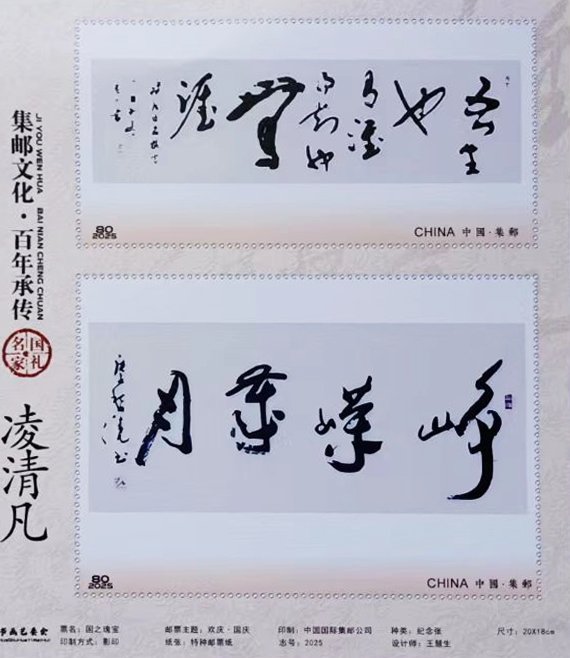 集邮文化·百年承传
JI YOU WEN HUA BAI NIAN CHENG CHUAN
国礼
名家
凌清凡
吾生
也
有涯
而知也
無
涯
80
2025
CHINA 中國·集郵
崢嶸歲月
80
2025
CHINA 中國·集郵
书画艺委会
票名：国之瑰宝 邮票主题：欢庆·国庆 印制：中国国际集邮公司 种类：纪念张 尺寸：20X18cm
印制方式：影印 纸张：特种邮票纸 志号：2025 设计师：王慧生